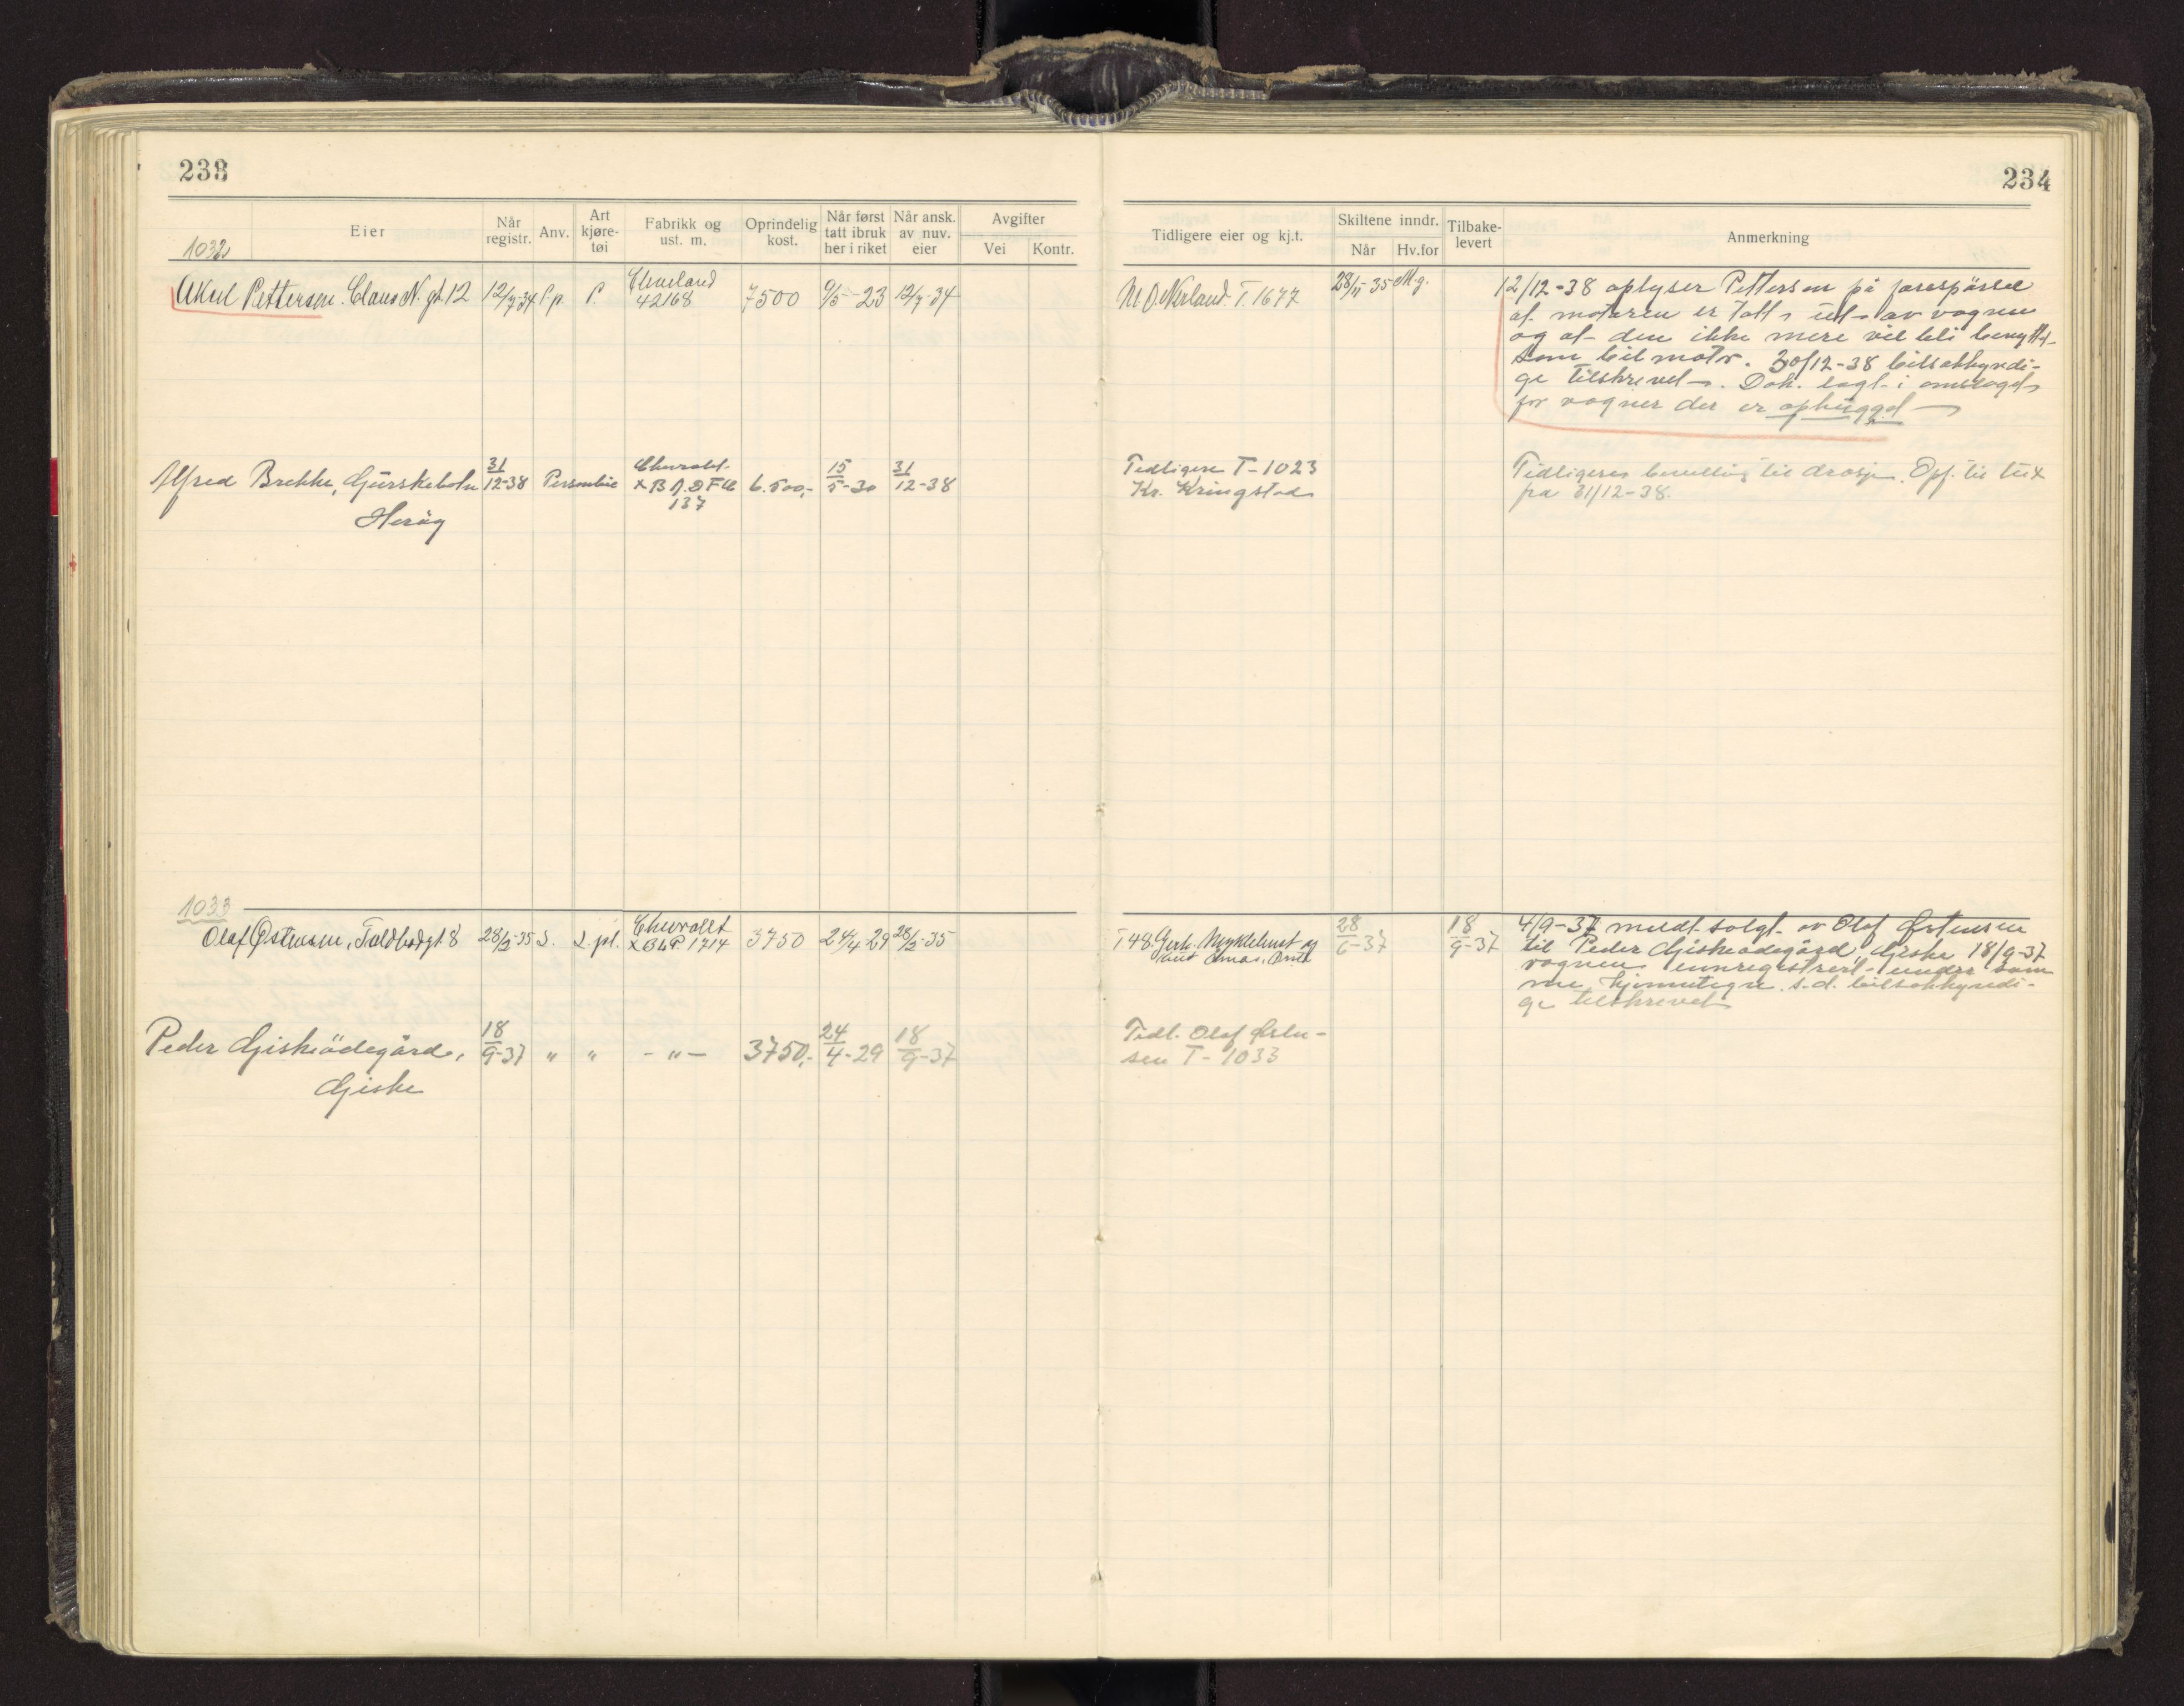 233
234
Eier
Når registr.
Anv.
Art kjøre-tøi
Fabrikk og ust. m.
Oprindelig kost.
Når først tatt ibruk her i riket
Når ansk. av nuv. eier
Avgifter
Vei
Kontr.
Tidligere eier og kj.t.
Skiltene inndr.
Når
Hv.for
Tilbake-levert
Anmerkning
1032
Aksel Pettersen. Claus N. gt. 12 12/7-34 P.p. P. Cleveland 42168 7500 9/5-23 12/7-34
M. O. Nerland. T. 1677 28/11-35 M.g.
12/12-38 oplyser Pettersen på forespörsel
at motoren er tatt ut av vognen
og at den ikke mere vil bli benyttet
som bilmotor. 30/12-38 bilsakkyndi-
ge tilskrevet. Dok. lagt i omslaget
for vogner der er ophugget
Alfred Brekke, Gurskebotn 31/12-38 Personbil Chevrolet x B A.D F16 137 6.500,- 15/5-30 31/12-38
Heröy
Tidligere T-1023
Kr. Kringstad
Tidligere bevilling til drosje. Opf. til
fra 31/12-38.
1033
Olaf Østensen, Toldbodgt 8 28/2-35 L. L. pl. Chevrolet x B L P. 1714 3750 24/4 29 28/2-35
T 48. Gerh. Myklebust og
Knut
28/6-37
18/9-37
4/9-37 meldt solgt av Olaf Østensen
til Peder Giskeödegård, Giske 18/9-37
vognen innregistrert under sam
me kjennetegn. s.d. bilsakkyndi-
ge tilskrevet
Peder Giskeödegård, 18/9-37 " " - " - 3750,- 24/4-29 18/9-37
Giske
Tidl. Olaf Østen-
sen T-1033